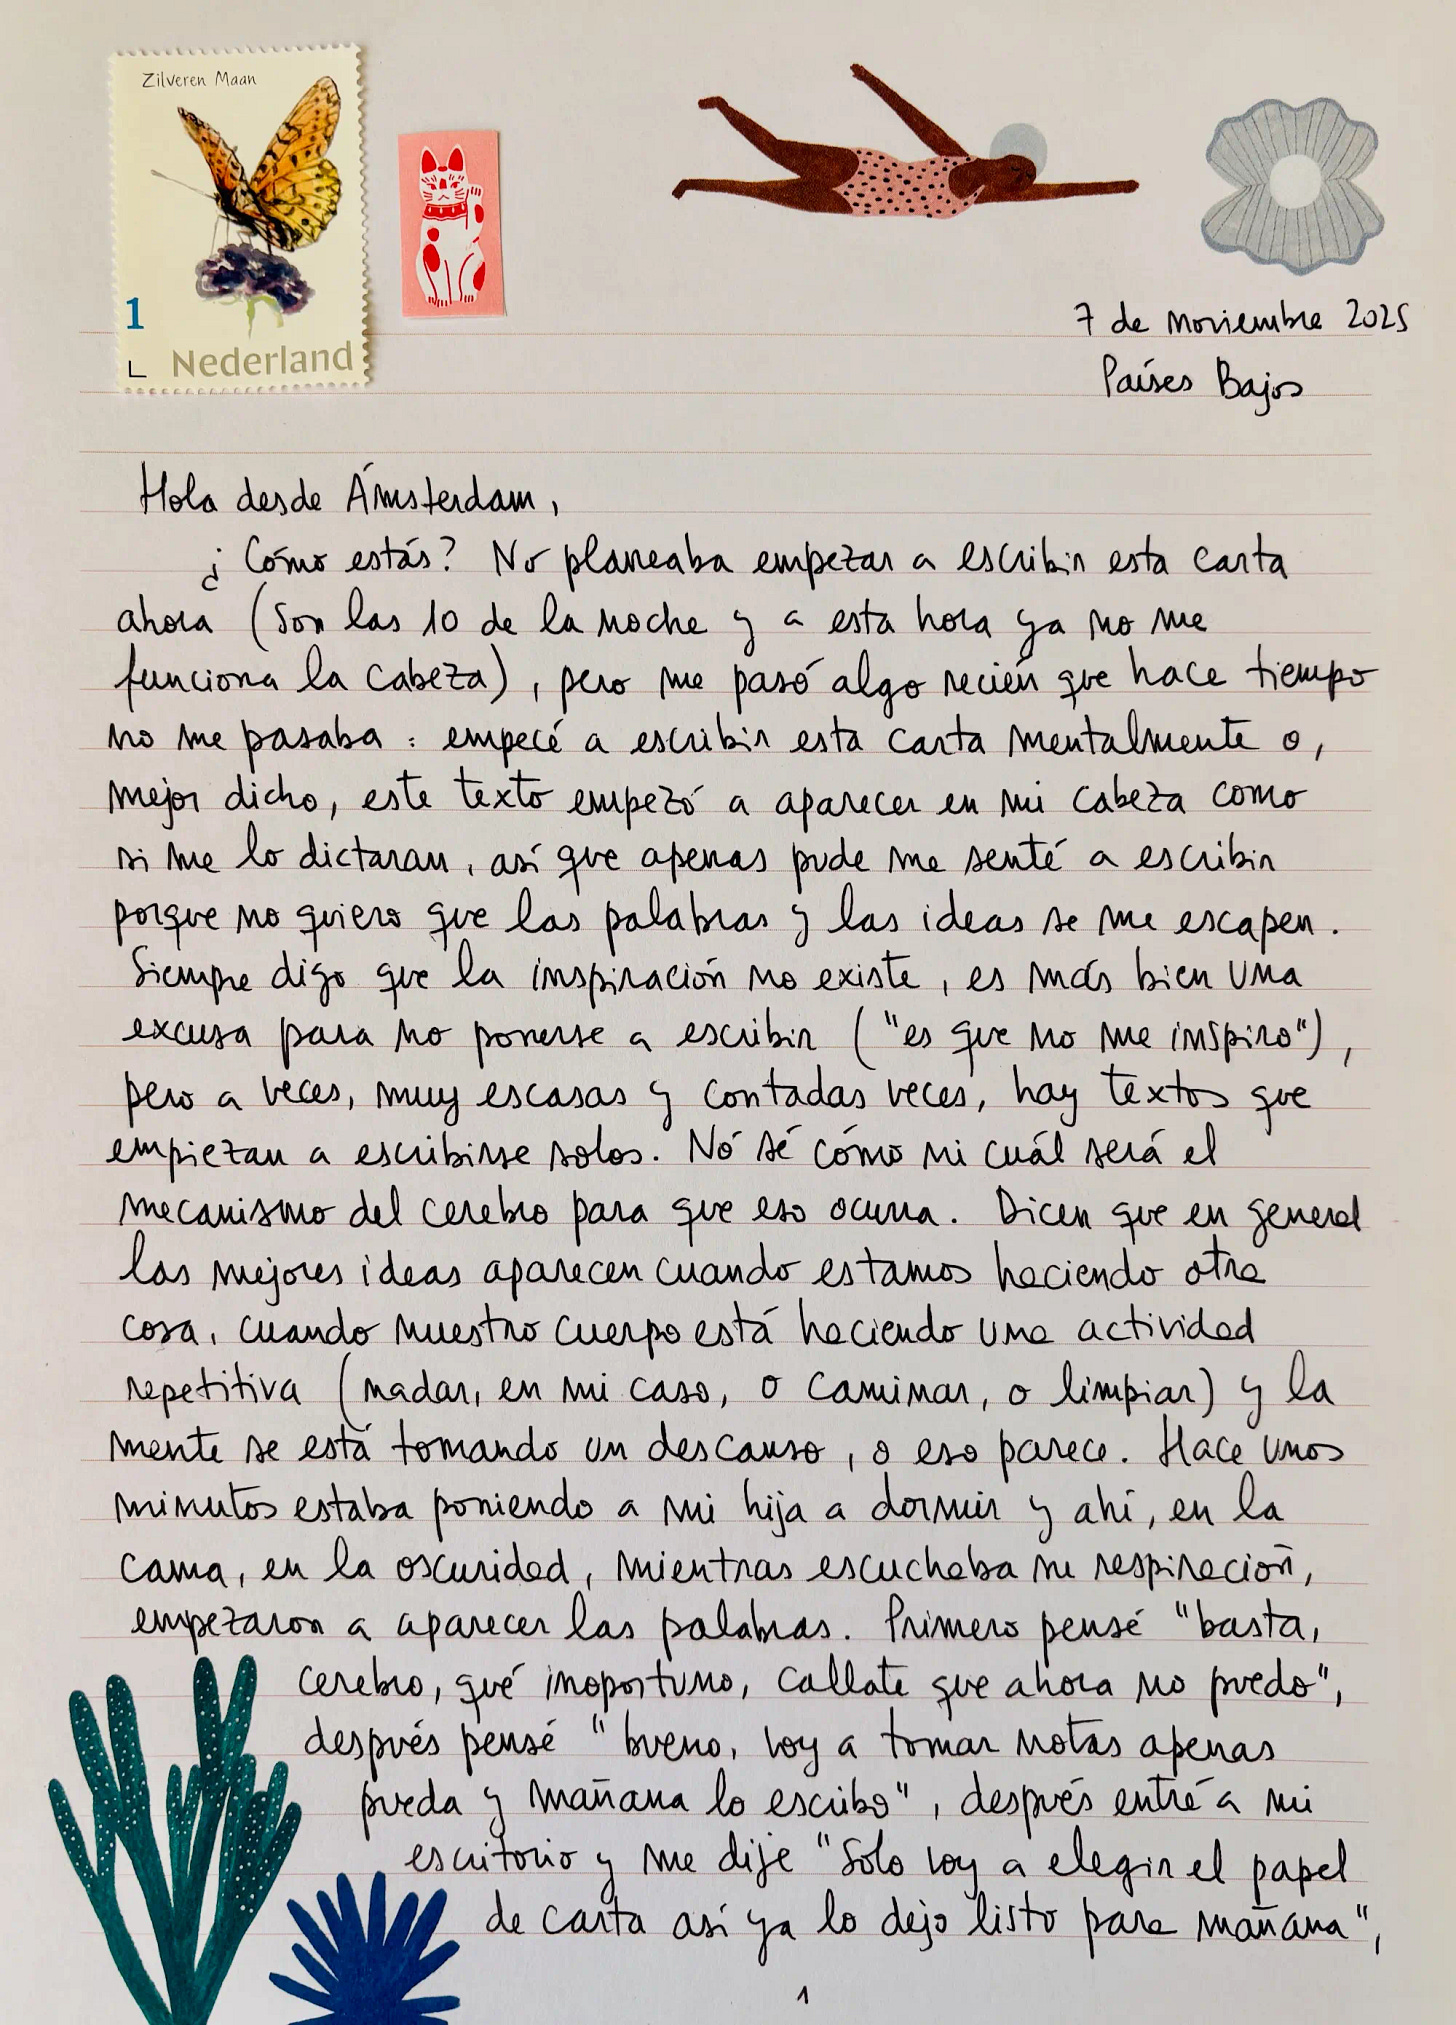 Zilveren Maan
1
L
Nederland
7 de noviembre 2025
Países Bajos
Hola desde Ámsterdam,
¿Cómo estás? No planeaba empezar a escribir esta carta
ahora (son las 10 de la noche y a esta hora ya no me
funciona la cabeza), pero me pasó algo recién que hace tiempo
no me pasaba: empecé a escribir esta carta mentalmente o,
mejor dicho, este texto empezó a aparecer en mi cabeza como
si me lo dictaran, así que apenas pude me senté a escribir
porque no quiero que las palabras y las ideas se me escapen.
Siempre digo que la inspiración no existe, es más bien una
excusa para no ponerse a escribir ("es que no me inspiro"),
pero a veces, muy escasas y contadas veces, hay textos que
empiezan a escribirse solos. No sé cómo ni cuál será el
mecanismo del cerebro para que eso ocurra. Dicen que en general
las mejores ideas aparecen cuando estamos haciendo otra
cosa, cuando nuestro cuerpo está haciendo una actividad
repetitiva (nadar, en mi caso, o caminar, o limpiar) y la
mente se está tomando un descanso, o eso parece. Hace unos
minutos estaba poniendo a mi hija a dormir y ahí, en la
cama, en la oscuridad, mientras escuchaba su respiración,
empezaron a aparecer las palabras. Primero pensé "basta,
cerebro, qué inoportuno, callate que ahora no puedo",
después pensé "bueno, voy a tomar notas apenas
pueda y mañana lo escribo", después entré a mi
escritorio y me dije "solo voy a elegir el papel
de carta así ya lo dejo listo para mañana",
1